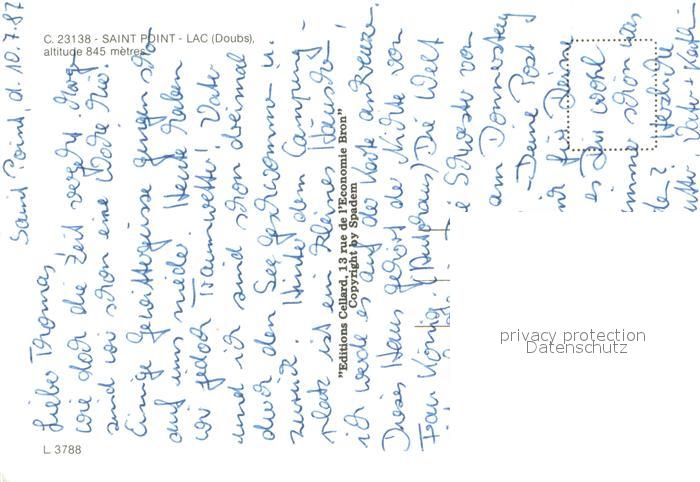 C. 23138 - SAINT POINT - LAC (Doubs),
altitude 845 mètres
Saint Point, d. 10.7.87
Lieber Thomas
wie doch die Zeit vergeht. Nun
sind wir schon eine Woche hier.
Einige Gewittergüsse gingen schon
auf uns nieder. Heute haben
wir jedoch Traumwetter! Vater
und ich sind schon dreimal
durch den See geschwommen u.
zurück. Hinter dem Camping-
platz ist ein kleines Häuschen
ich werde es auf der Karte ankreuzen.
Dieses Haus gehört der Nichte von
Frau König. (Autohaus) Die Welt
Schwester von
am Donnerstag
Deine Post
für Dein
es Dir wohl
schön
Herzliche
Vater
"Editions Cellard, 13 rue de l'Economie Bron"
Copyright by Spadem
privacy protection
Datenschutz
L 3788